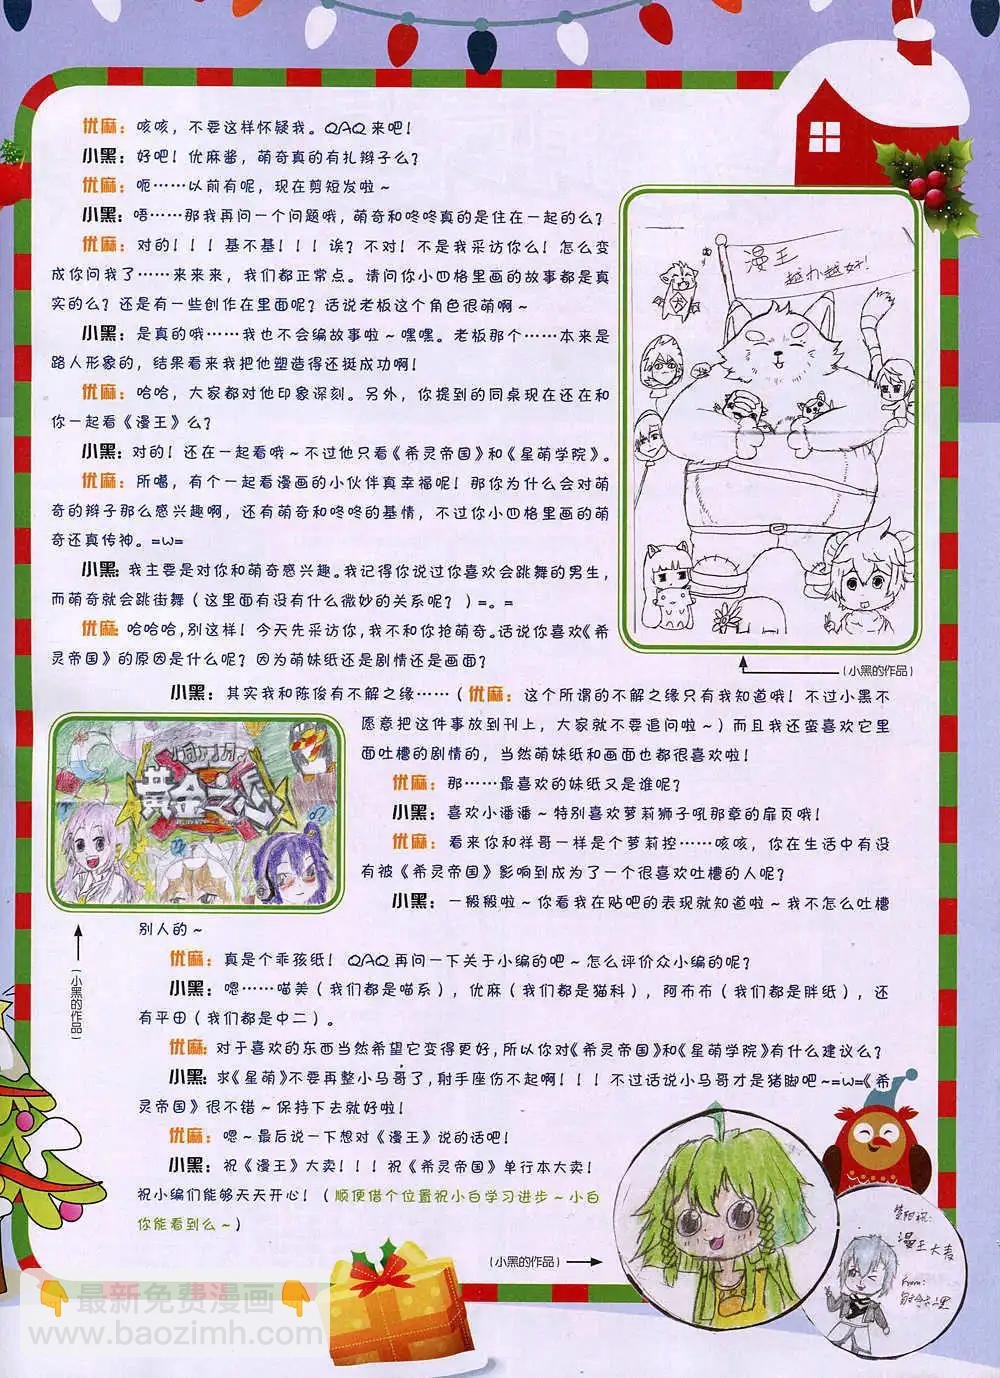 优麻：咳咳，不要这样怀疑我。QAQ 来吧！
小黑：好吧！优麻酱，萌奇真的有扎辫子么？
优麻：呃……以前有呢，现在剪短发啦～
小黑：唔……那我再问一个问题哦，萌奇和咚咚真的是住在一起的么？
优麻：对的！！！基不基！！！诶？不对！不是我采访你么！怎么变
成你问我了……来来来，我们都正常点。请问你小四格里画的故事都是真
实的么？还是有一些创作在里面呢？话说老板这个角色很萌啊～
小黑：是真的哦……我也不会编故事啦～嘿嘿。老板那个……本来是
路人形象的，结果看来我把他塑造得还挺成功啊！
优麻：哈哈，大家都对他印象深刻。另外，你提到的同桌现在还在和
你一起看《漫王》么？
小黑：对的！还在一起看哦～不过他只看《希灵帝国》和《星萌学院》。
优麻：所噶，有个一起看漫画的小伙伴真幸福呢！那你为什么会对萌
奇的辫子那么感兴趣啊，还有萌奇和咚咚的基情，不过你小四格里画的萌
奇还真传神。=ω=
小黑：我主要是对你和萌奇感兴趣。我记得你说过你喜欢会跳舞的男生，
而萌奇就会跳街舞（这里面有没有什么微妙的关系呢？）=。=
优麻：哈哈哈，别这样！今天先采访你，我不和你抢萌奇。话说你喜欢《希
灵帝国》的原因是什么呢？因为萌妹纸还是剧情还是画面？
漫王
越办越好！
(小黑的作品)
小黑：其实我和陈俊有不解之缘……（优麻：这个所谓的不解之缘只有我知道哦！不过小黑不
愿意把这件事放到刊上，大家就不要追问啦～）而且我还蛮喜欢它里
面吐槽的剧情的，当然萌妹纸和画面也都很喜欢啦！
优麻：那……最喜欢的妹纸又是谁呢？
小黑：喜欢小潘潘～特别喜欢萝莉狮子吼那章的扉页哦！
优麻：看来你和祥哥一样是个萝莉控……咳咳，你在生活中有没
有被《希灵帝国》影响到成为了一个很喜欢吐槽的人呢？
小黑：一般般啦～你看我在贴吧的表现就知道啦～我不怎么吐槽
别人的～
黄金之
(小黑的作品)
优麻：真是个乖孩纸！QAQ 再问一下关于小编的吧～怎么评价众小编的呢？
小黑：嗯……喵美（我们都是喵系），优麻（我们都是猫科），阿布布（我们都是胖纸），还
有平田（我们都是中二）。
优麻：对于喜欢的东西当然希望它变得更好，所以你对《希灵帝国》和《星萌学院》有什么建议么？
小黑：求《星萌》不要再整小马哥了，射手座伤不起啊！！！不过话说小马哥才是猪脚吧～=ω=《希
灵帝国》很不错～保持下去就好啦！
优麻：嗯～最后说一下想对《漫王》说的话吧！
小黑：祝《漫王》大卖！！！祝《希灵帝国》单行本大卖！
祝小编们能够天天开心！（顺便借个位置祝小白学习进步～小白
你能看到么～）
(小黑的作品)
漫王大卖
From:
最新免费漫画
www.baozimh.com